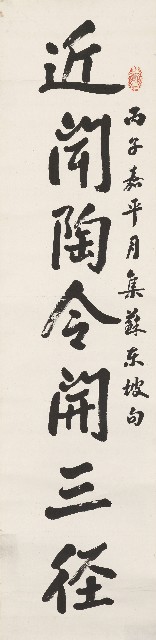 丙子嘉平月集蘇東坡句
近聞陶令開三径